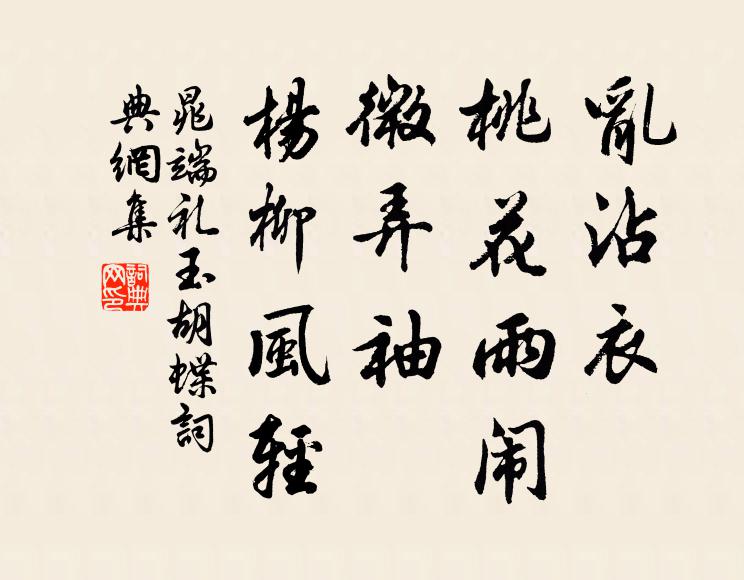 亂沾衣
桃花雨闹
微弄袖
楊柳風輕
晁端礼玉胡蝶詞
典網集
詞典网印